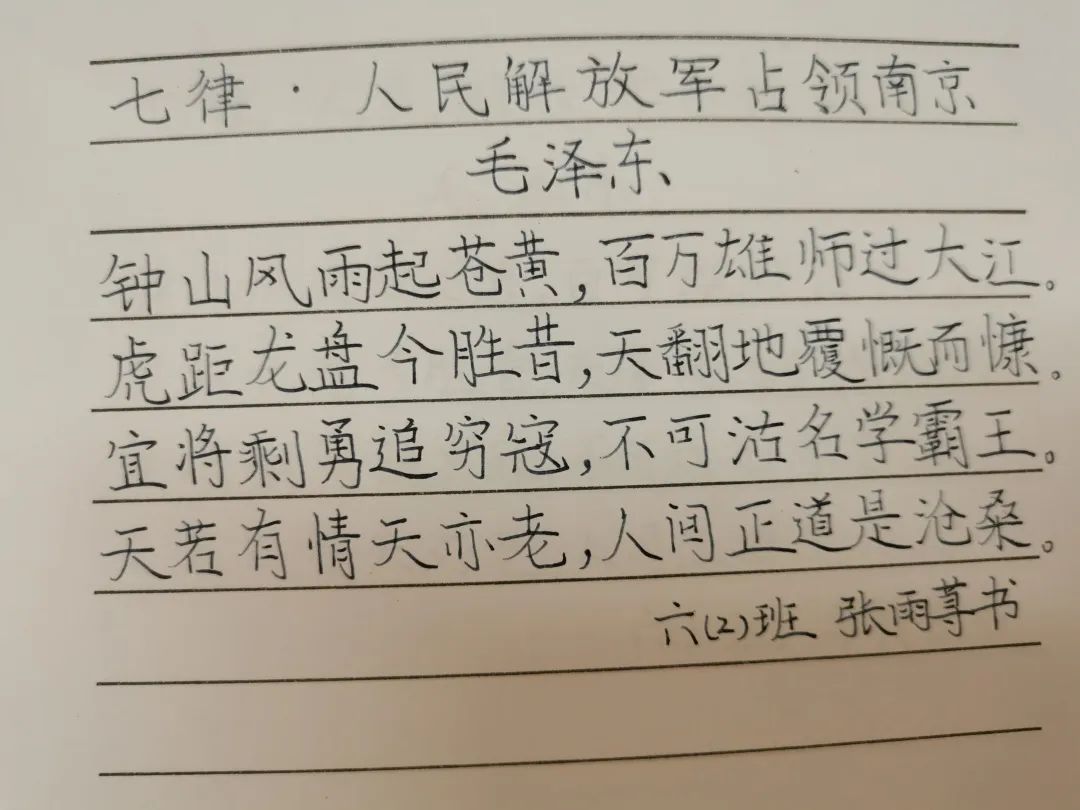 七律·人民解放军占领南京
毛泽东
钟山风雨起苍黄,百万雄师过大江。
虎距龙盘今胜昔,天翻地覆慨而慷。
宜将剩勇追穷寇,不可沽名学霸王。
天若有情天亦老,人间正道是沧桑。
六(2)班 张雨荨书